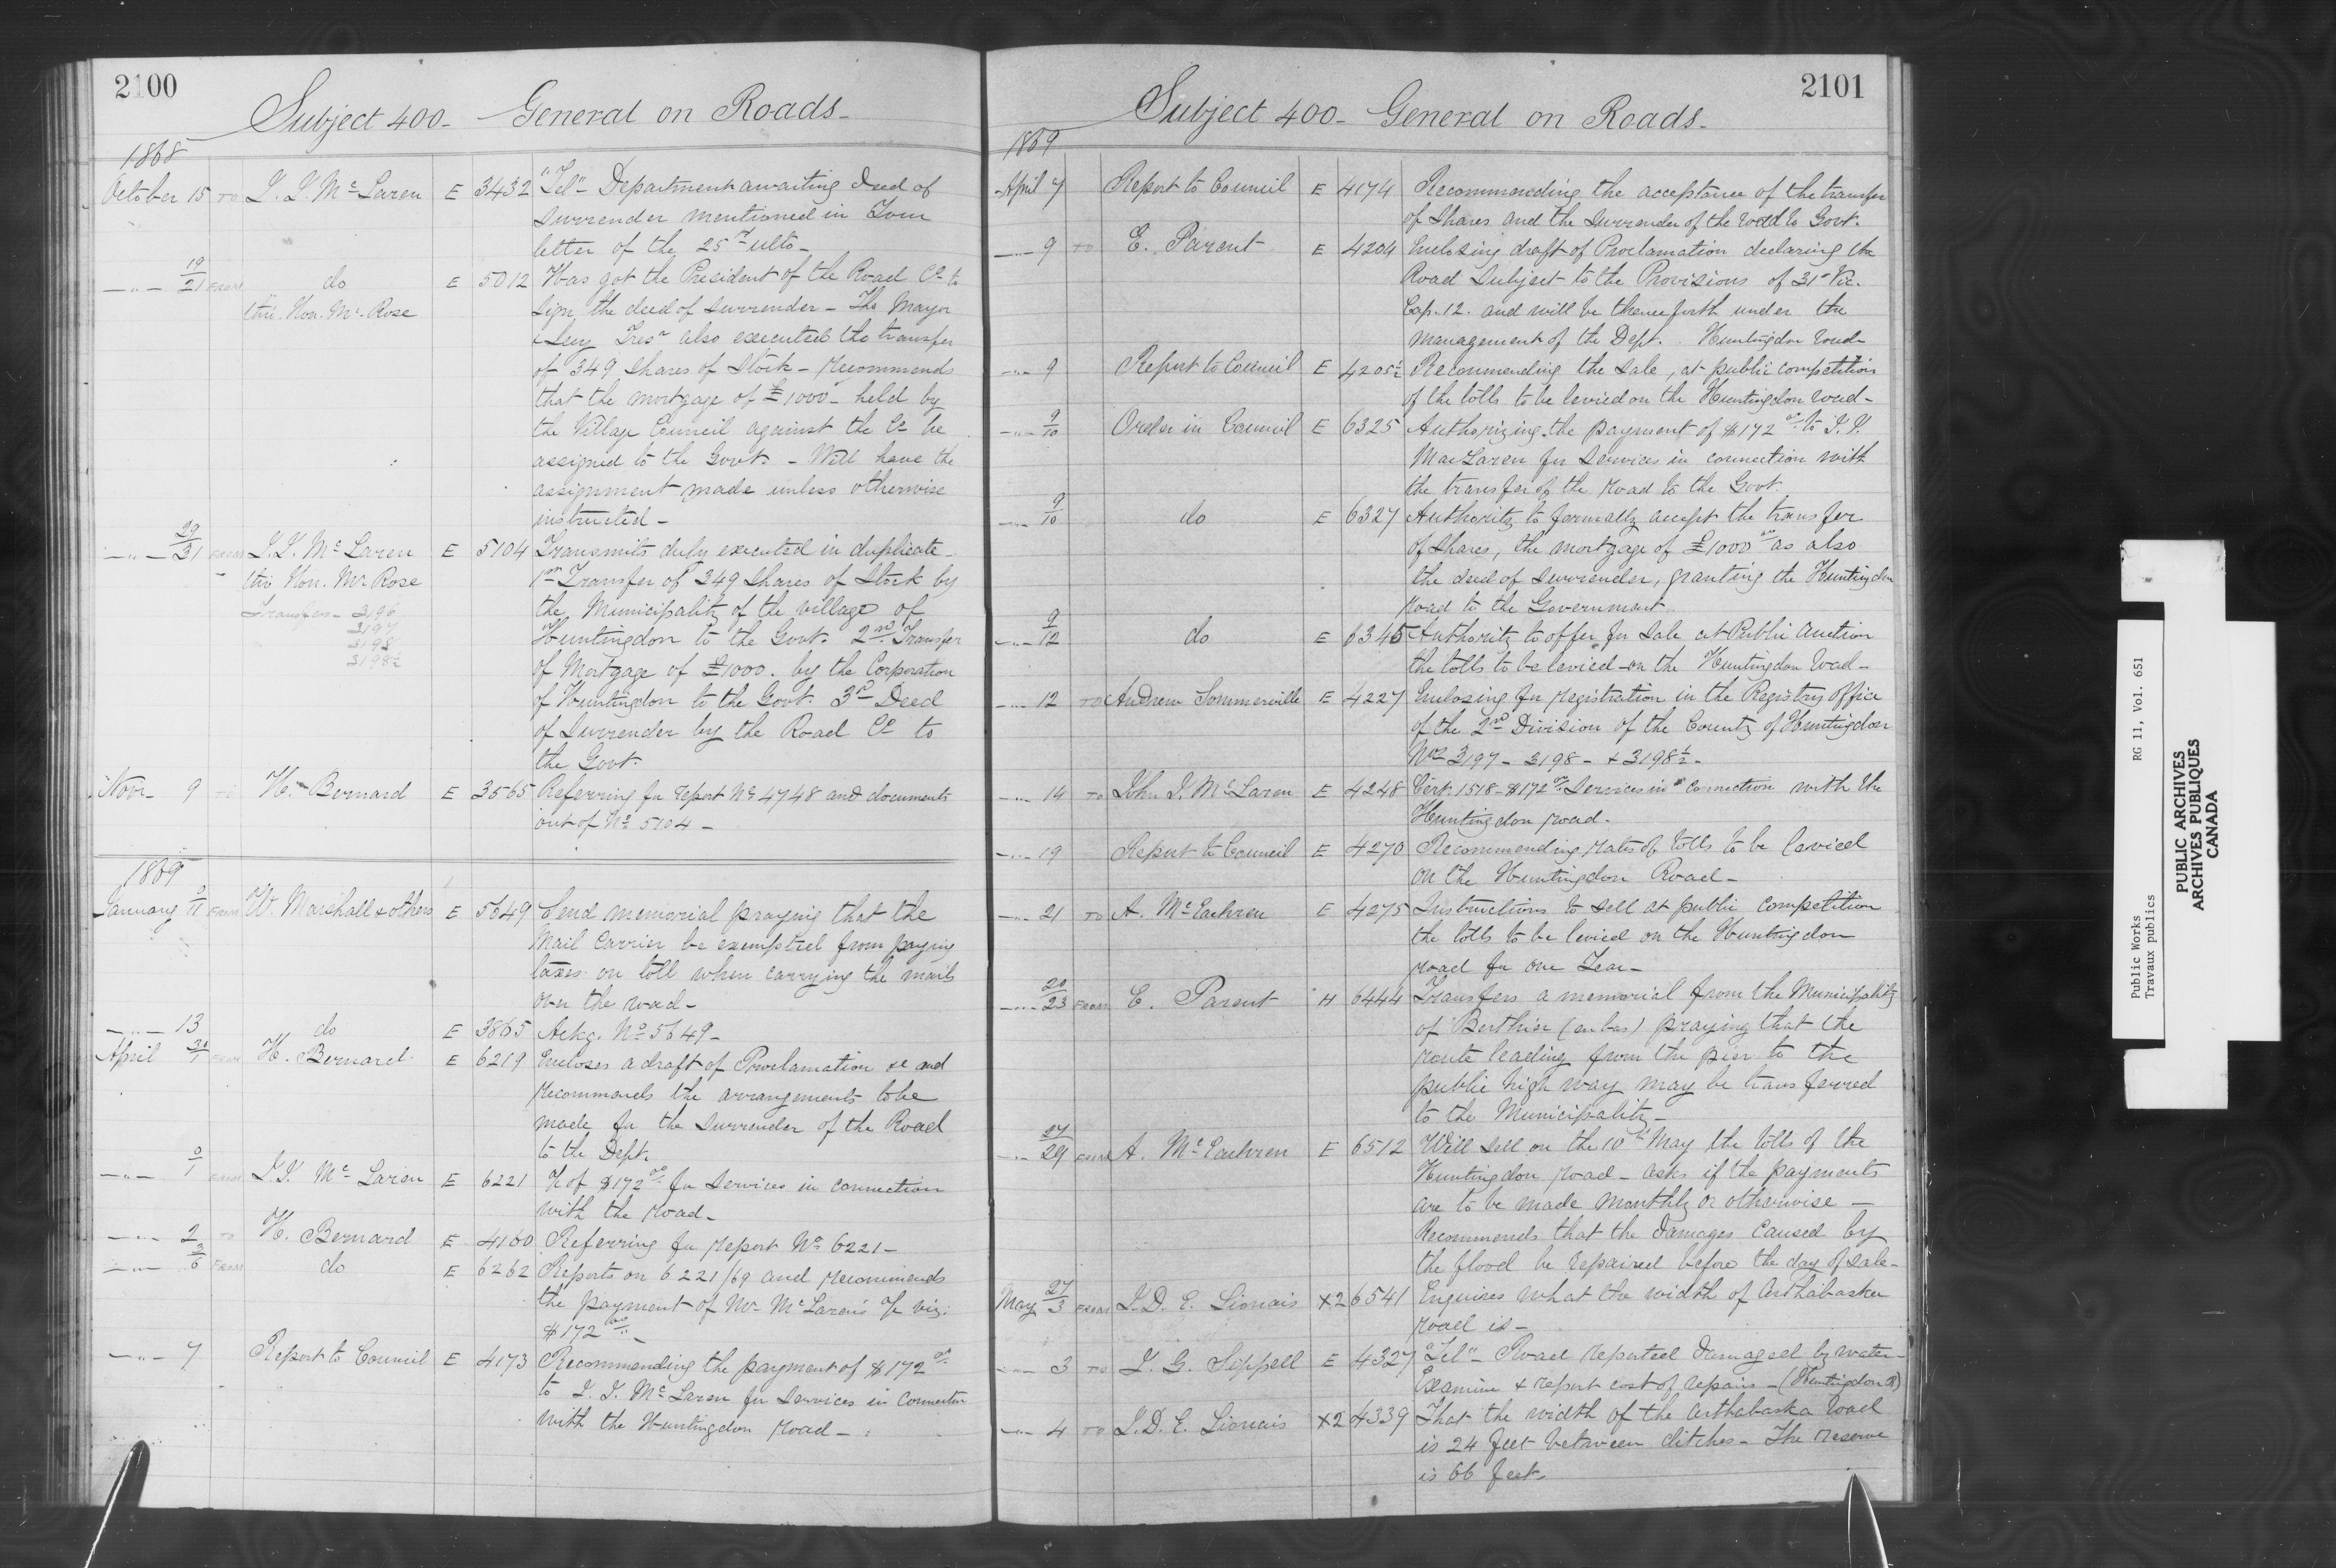 2100
Subject 400 - General on Roads -
1868
October 15 TO J. J. McLaren E 3432 "Tel" - Department awaiting Deed of
surrender mentioned in Your
letter of the 25th ulto -
—"— 19/21 FROM do E 5012 Has got the President of the Road Co. to
thro. Hon. Mr. Rose sign the deed of surrender - The Mayor
& Secy Tresr also executed the transfer
of 349 shares of Stock - Recommends
that the mortgage of £1000 - held by
the Village Council against the Co. be
assigned to the Govt. - Will have the
assignment made unless otherwise
instructed -
—"— 29/31 FROM J. J. McLaren E 5104 Transmits duly executed in duplicate -
thro Hon. Mr Rose 1st Transfer of 349 Shares of Stock by
Transfers - 3196 the Municipality of the village of
3197 Huntingdon to the Govt. 2nd Transfer
3198
3198½ of Mortgage of £1000. by the Corporation
of Huntingdon to the Govt. 3rd Deed
of Surrender by the Road Co to
the Govt.
Novr. 9 TO H. Bernard E 3565 Referring for report No 4748 and documents
out of No 5104 -
1869
January 9/11 FROM W. Marshall & others E 5649 Send memorial praying that the
Mail Carrier be exempted from paying
taxes on toll when carrying the mails
over the road -
—"— 13 do E 3865 Ackg. No 5649 -
April 31/1 FROM H. Bernard E 6219 Encloses a draft of Proclamation &c and
recommends the arrangements to be
made for the surrender of the Road
to the Dept.
—"— 0/1 FROM J. J. McLaren E 6221 a/c of $172.00 for services in connection
with the road -
—"— 2 TO H. Bernard E 4160 Referring for report No 6221 -
—"— 3/6 FROM do E 6262 Reports on 6221/69 and recommends
the payment of Mr McLaren's a/c viz:
$172.00 -
—"— 7 Report to Council E 4173 Recommending the payment of $172.00
to J. J. McLaren for services in Connection
with the Huntingdon road -
2101
Subject 400 - General on Roads -
1869
April 7 Report to Council E 4174 Recommending the acceptance of the transfer
of Shares and the surrender of the road to Govt.
—"— 9 TO E. Parent E 4204 Enclosing draft of Proclamation declaring the
Road subject to the Provisions of 31st Vic.
Cap. 12. and will be thenceforth under the
management of the Dept. Huntingdon road -
—"— 9 Report to Council E 4205½ Recommending the sale, at public competition
of the tolls to be levied on the Huntingdon road -
—"— 9/10 Order in Council E 6325 Authorizing the payment of $172.00 to J. J.
MacLaren for services in connection with
the transfer of the road to the Govt.
—"— 9/10 do E 6327 Authority to formally accept the transfer
of shares, the mortgage of £1000.00 as also
the deed of surrender, granting the Huntingdon
road to the Government.
—"— 9/12 do E 6345 Authority to offer for sale at Public Auction
the tolls to be levied on the Huntingdon road -
—"— 12 TO Andrew Sommerville E 4227 Enclosing for registration in the Registry office
of the 2nd Division of the County of Huntingdon
Nos 3197 - 3198 - & 3198½ -
—"— 14 TO John J. McLaren E 4248 Cert. 1518 - $172.00 Services in connection with the
Huntingdon road -
—"— 19 Report to Council E 4270 Recommending rates of tolls to be levied
on the Huntingdon Road -
—"— 21 TO A. McEachren E 4275 Instructions to sell at public competition
the tolls to be levied on the Huntingdon
road for one Year -
—"— 20/23 FROM E. Parent H 6444 Transfers a memorial from the Municipality
of Berthier (en bas) praying that the
route leading from the pier to the
public high way may be transferred
to the Municipality -
—"— 27/29 FROM A. McEachren E 6512 Will sell on the 10th May the tolls of the
Huntingdon road - asks if the payments
are to be made monthly or otherwise -
Recommends that the damages caused by
the flood be repaired before the day of sale -
May 27/3 FROM J. D. E. Lionais X2 6541 Enquires what the width of Arthabaska
road is -
—"— 3 TO J. G. Sippell E 4327 "Tel" - Road reported damaged by water -
Examine & report cost of repairs - (Huntingdon Rd)
—"— 4 TO J. D. E. Lionais X2 4339 That the width of the Arthabaska road
is 24 feet between ditches - The reserve
is 66 feet.
Public Works RG 11, Vol. 651
Travaux publics
PUBLIC ARCHIVES
ARCHIVES PUBLIQUES
CANADA